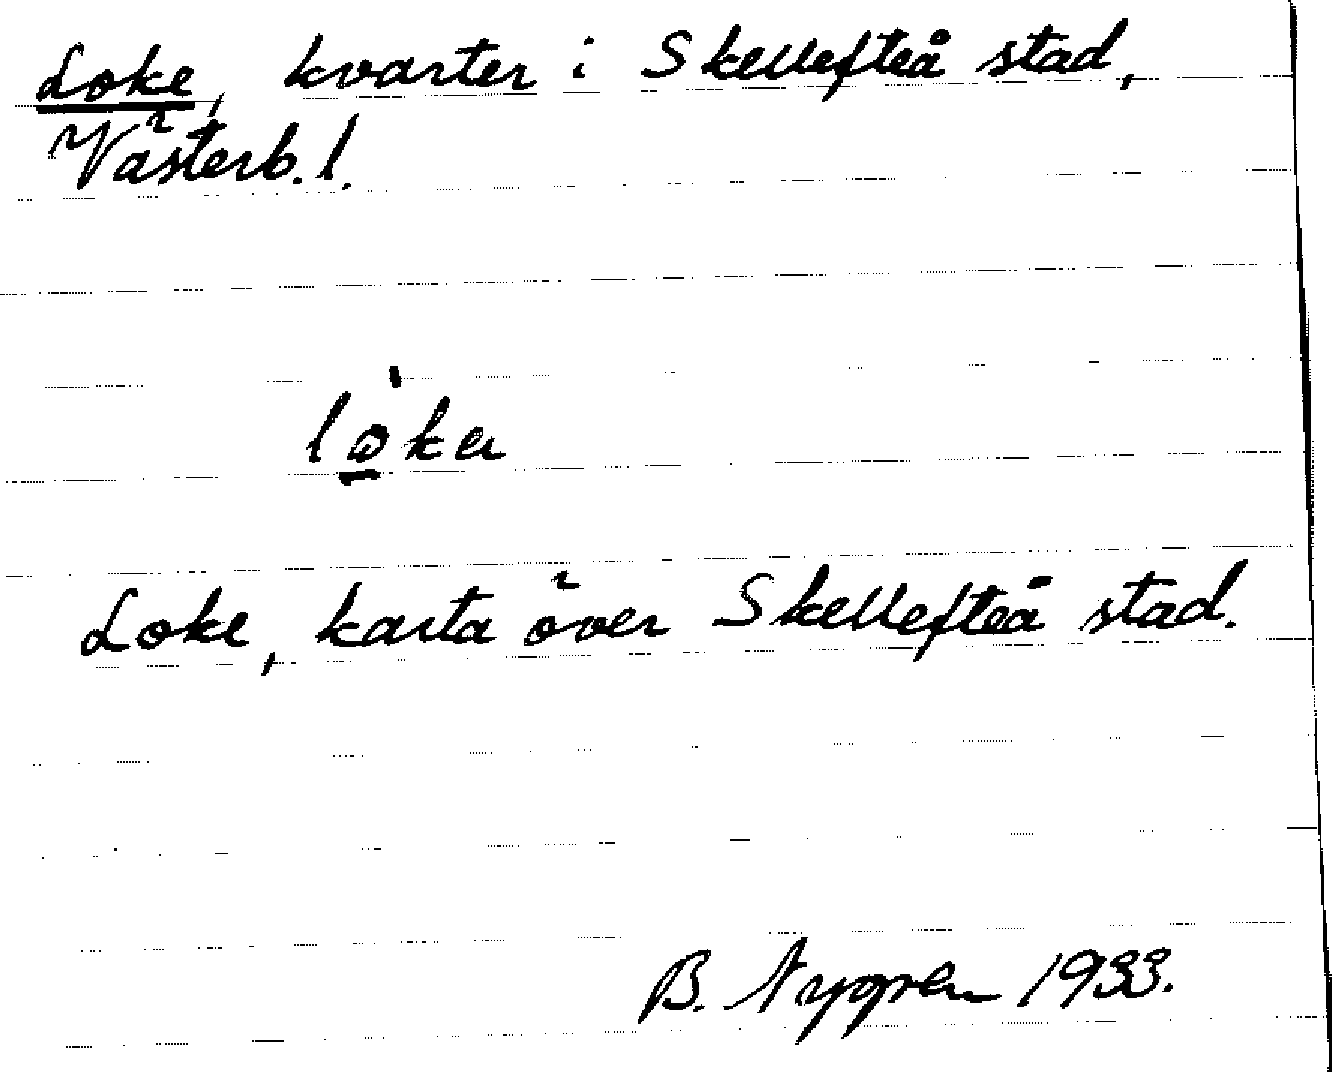 Loke, kvarter i Skellefteå stad,
Västerb. l.
Loke, karta över Skellefteå stad.
B. Nygren 1933.